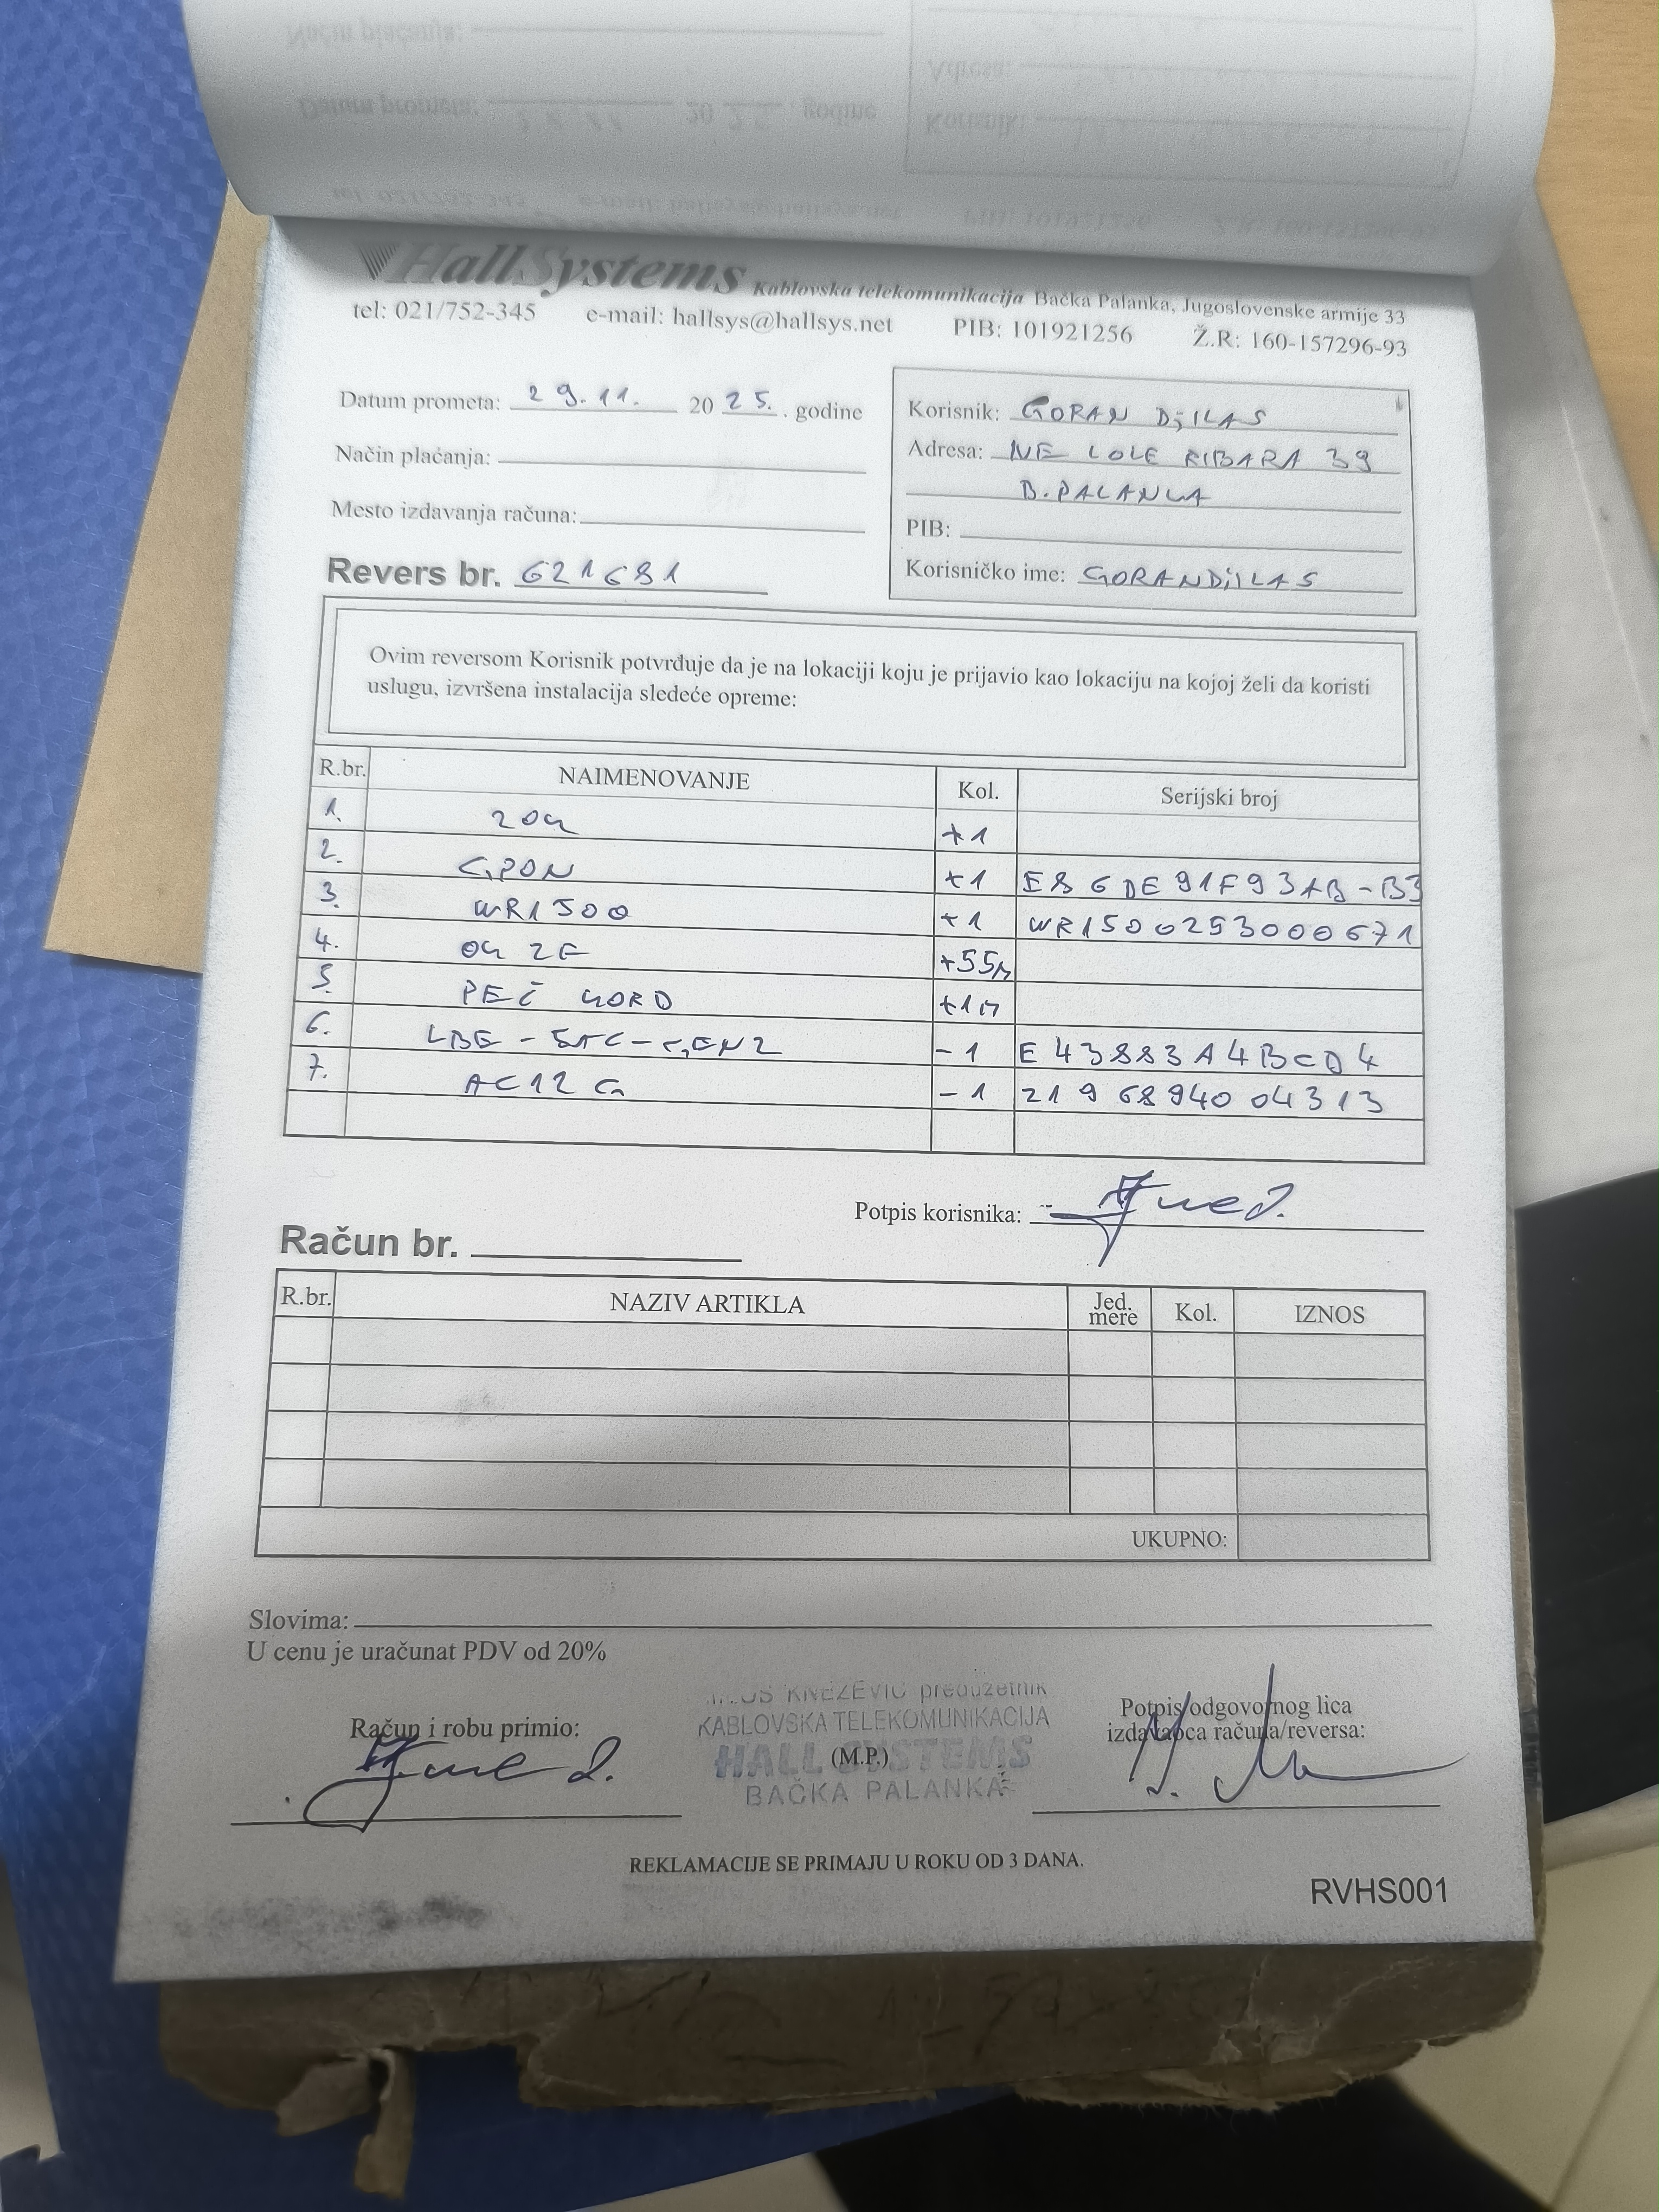 HallSystems Kablovska telekomunikacija Bačka Palanka, Jugoslovenske armije 33
tel: 021/752-345 e-mail: hallsys@hallsys.net PIB: 101921256 Ž.R: 160-157296-93
Datum prometa: 29.11. 20 25. . godine
Način plaćanja:
Mesto izdavanja računa:
Revers br. 621681
Korisnik: GORAN DjILAS
Adresa: NE LOLE RIBARA 39
B. PALANKA
PIB:
Korisničko ime: GORANDjILAS
Ovim reversom Korisnik potvrđuje da je na lokaciji koju je prijavio kao lokaciju na kojoj želi da koristi
uslugu, izvršena instalacija sledeće opreme:
R.br. NAIMENOVANJE Kol. Serijski broj
1. ZOK +1
2. GPON +1 E86DE91F93AB-B3
3. WR1500 +1 WR1500253000671
4. OK 2F +55m
5. PEČ KORD +1m
6. LBE-5AC-GEN2 -1 E43883A4BCD4
7. AC12G -1 2196894004313
Potpis korisnika:
Račun br.
R.br. NAZIV ARTIKLA Jed. mere Kol. IZNOS
UKUPNO:
Slovima:
U cenu je uračunat PDV od 20%
KNEŽEVIĆ preduzetnik
KABLOVSKA TELEKOMUNIKACIJA
HALL SYSTEMS
BAČKA PALANKA
Račun i robu primio:
(M.P.)
Potpis odgovornog lica
izdavaoca računa/reversa:
REKLAMACIJE SE PRIMAJU U ROKU OD 3 DANA.
RVHS001